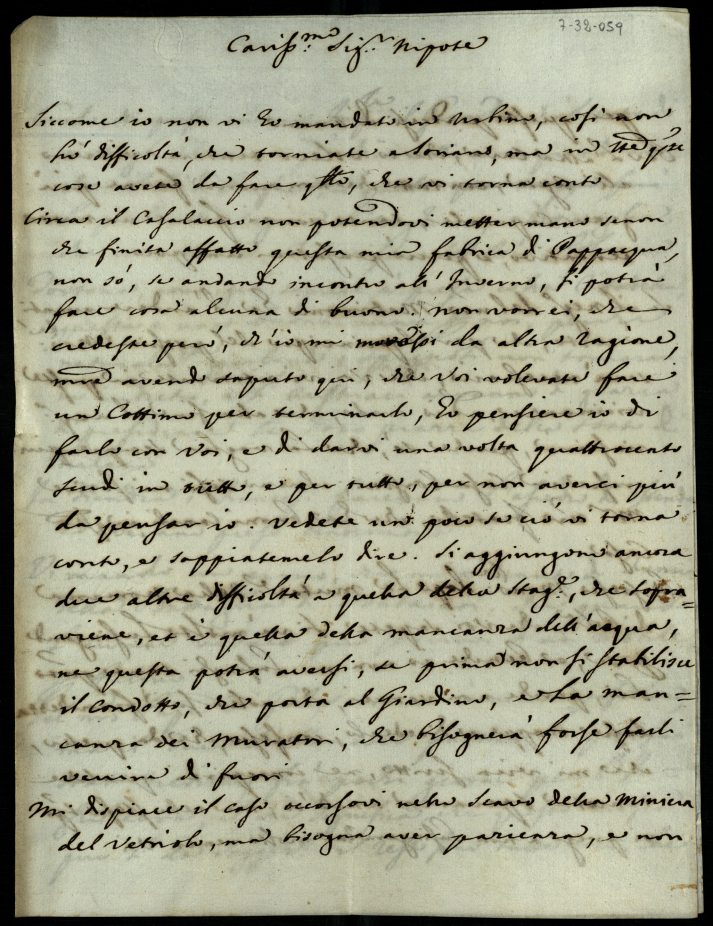 7-32-059
Cariss.mo Sig.r Nipote
Siccome io non vi ho mandato in Urbino, così non
hò difficoltà, che torniate a Soriano, ma in tte qste
cose avete da fare qllo, che vi torna conto
Circa il Casalaccio non potendovi metter mano senon
che finita affatto questa mia fabrica di Pappacqua,
non sò, se andando incontro all'Inverno, si potrà
fare cosa alcuna di buono. non vorrei, che
credeste però, ch'io mi movessi da altra ragione,
mre avendo saputo quì, che Voi volevate fare
un Cottimo per terminarlo, ho pensiere io di
farlo con Voi, e di darvi una volta quattrocento
scudi in tutto, e per tutto, per non averci più
da pensar io. vedete un poco se ciò vi torna
conto, e sappiatemelo dire. Si aggiungono ancora
due altre difficoltà a quella della Stag.e, che sopra=
viene, et è quella della mancanza dell'acqua,
ne questa potrà aversi, se prima non si stabilisce
il condotto, che porta al Giardino, e la man=
canza dei Muratori, che bisognerà forse farli
venire di fuori
Mi dispiace il caso occorsovi nello scavo della Miniera
del Vetriolo, ma bisogna aver pazienza, e non